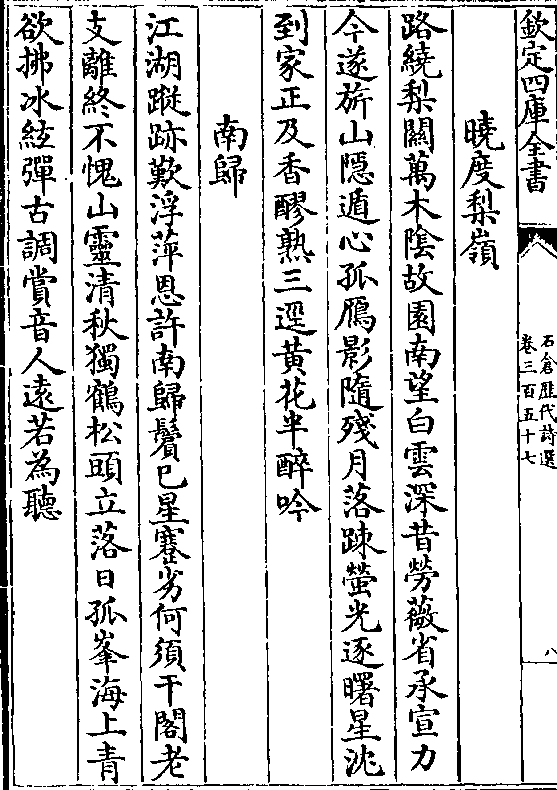 欽定四庫全書
石倉歷代詩選
卷三百五十七
八
曉度梨嶺
路繞梨關萬木陰故園南望白雲深昔勞薇省承宣力
今遂旂山隱遁心孤鴈影隨殘月落踈螢光逐曙星沈
到家正及香醪熟三逕黃花半醉吟
南歸
江湖蹤跡歎浮萍恩許南歸鬢已星蹇劣何須干閣老
支離終不愧山靈清秋獨鶴松頭立落日孤峯海上青
欲拂冰絃彈古調賞音人遠若為聽